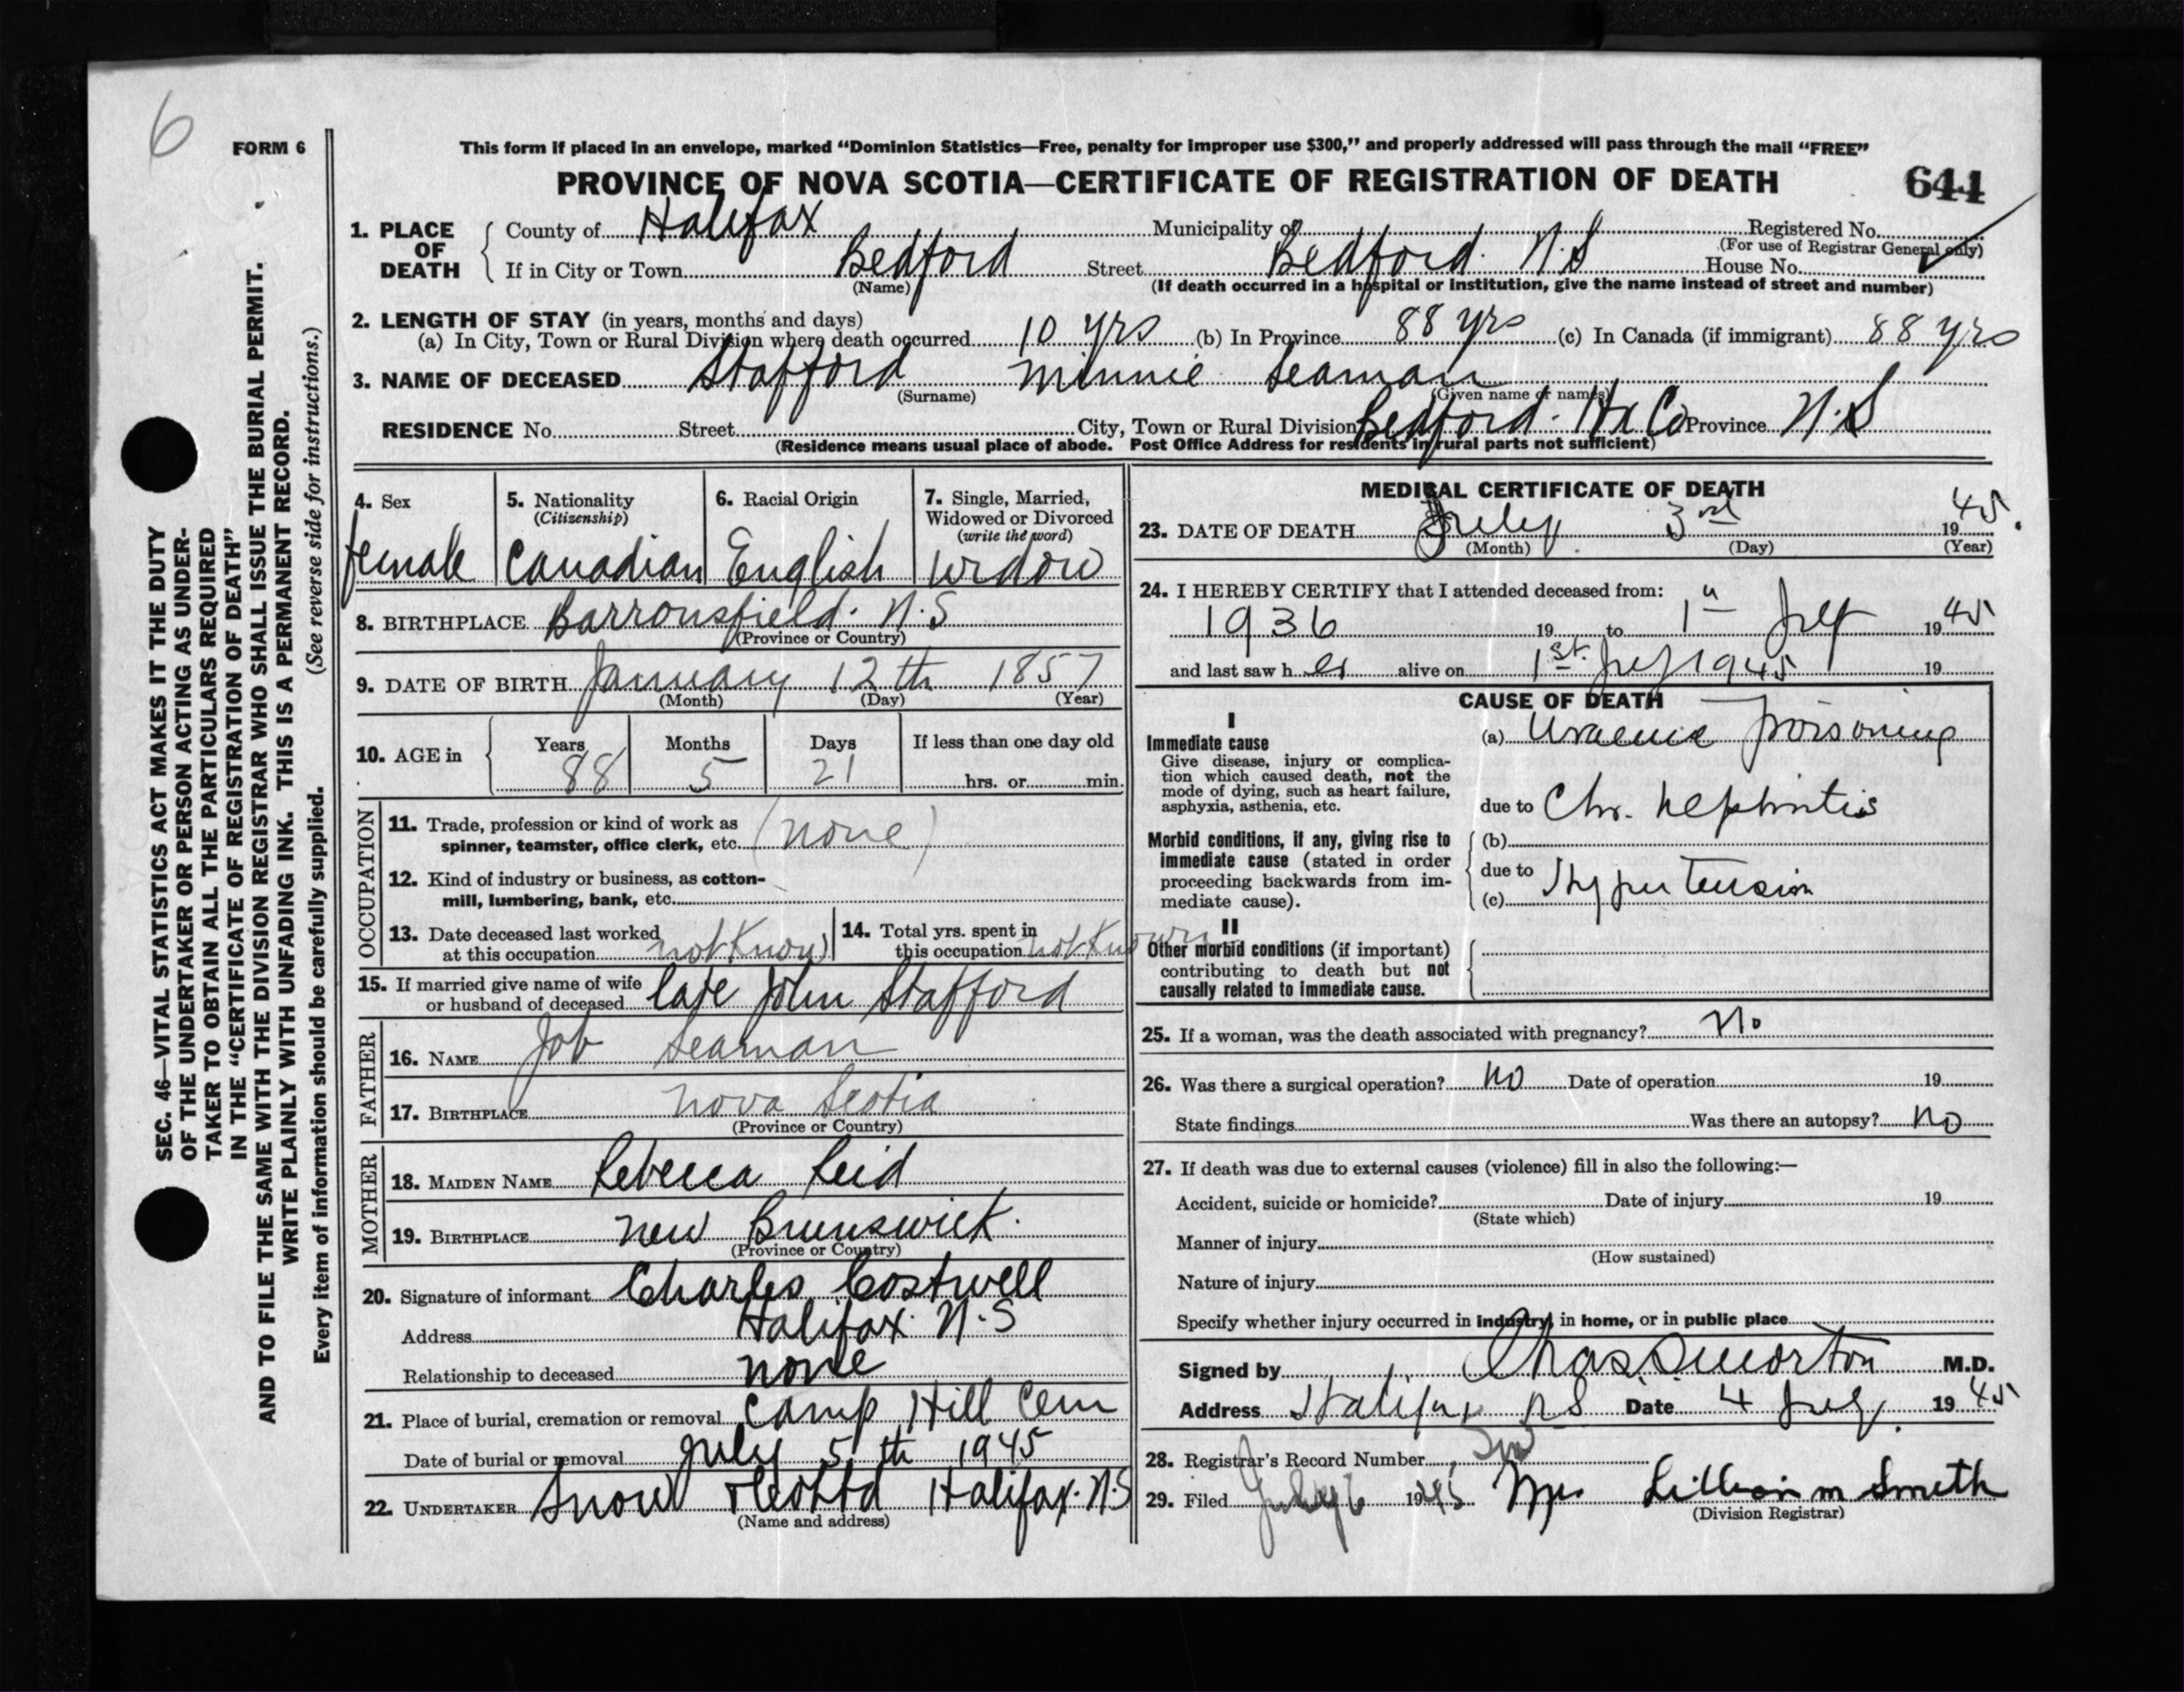 6
FORM 6
This form if placed in an envelope, marked “Dominion Statistics—Free, penalty for improper use $300,” and properly addressed will pass through the mail “FREE”
PROVINCE OF NOVA SCOTIA—CERTIFICATE OF REGISTRATION OF DEATH
644
SEC. 46—VITAL STATISTICS ACT MAKES IT THE DUTY
OF THE UNDERTAKER OR PERSON ACTING AS UNDER-
TAKER TO OBTAIN ALL THE PARTICULARS REQUIRED
IN THE “CERTIFICATE OF REGISTRATION OF DEATH”
AND TO FILE THE SAME WITH THE DIVISION REGISTRAR WHO SHALL ISSUE THE BURIAL PERMIT.
WRITE PLAINLY WITH UNFADING INK. THIS IS A PERMANENT RECORD.
Every item of information should be carefully supplied. (See reverse side for instructions.)
1. PLACE OF DEATH
County of Halifax Municipality of Registered No.
(For use of Registrar General only)
If in City or Town Bedford Street Bedford. N.S House No.
(Name) (If death occurred in a hospital or institution, give the name instead of street and number)
2. LENGTH OF STAY (in years, months and days)
(a) In City, Town or Rural Division where death occurred 10 yrs (b) In Province 88 yrs (c) In Canada (if immigrant) 88 yrs
3. NAME OF DECEASED Stafford Minnie Seaman
(Surname) (Given name or names)
RESIDENCE No. Street City, Town or Rural Division Bedford. Hx Co Province N.S
(Residence means usual place of abode. Post Office Address for residents in rural parts not sufficient)
4. Sex
female
5. Nationality
(Citizenship)
Canadian
6. Racial Origin
English
7. Single, Married,
Widowed or Divorced
(write the word)
widow
8. BIRTHPLACE Barronsfield. N.S
(Province or Country)
9. DATE OF BIRTH January 12th 1857
(Month) (Day) (Year)
10. AGE in
Years Months Days If less than one day old
88 5 21 hrs. or min.
OCCUPATION
11. Trade, profession or kind of work as
spinner, teamster, office clerk, etc. (none)
12. Kind of industry or business, as cotton-
mill, lumbering, bank, etc.
13. Date deceased last worked
at this occupation not Known
14. Total yrs. spent in
this occupation not Known
15. If married give name of wife
or husband of deceased late John Stafford
FATHER
16. NAME Job Seaman
17. BIRTHPLACE Nova Scotia
(Province or Country)
MOTHER
18. MAIDEN NAME Rebecca Reid
19. BIRTHPLACE New Brunswick.
(Province or Country)
20. Signature of informant Charles Costwell
Address Halifax. N.S
Relationship to deceased none
21. Place of burial, cremation or removal Camp Hill Cem
Date of burial or removal July 5th 1945
22. UNDERTAKER Snow & Co Ltd Halifax. N.S
(Name and address)
MEDICAL CERTIFICATE OF DEATH
23. DATE OF DEATH July 3rd 1945.
(Month) (Day) (Year)
24. I HEREBY CERTIFY that I attended deceased from:
1936 19 to 1st July 1945
and last saw her alive on 1st. July 1945 19
CAUSE OF DEATH
I
Immediate cause
Give disease, injury or complica-
tion which caused death, not the
mode of dying, such as heart failure,
asphyxia, asthenia, etc.
(a) Uraemic Poisoning
due to Chr. Nephritis
Morbid conditions, if any, giving rise to
immediate cause (stated in order
proceeding backwards from im-
mediate cause).
(b)
due to
(c) Hypertension
II
Other morbid conditions (if important)
contributing to death but not
causally related to immediate cause.
25. If a woman, was the death associated with pregnancy? No
26. Was there a surgical operation? No Date of operation 19
State findings Was there an autopsy? No
27. If death was due to external causes (violence) fill in also the following:—
Accident, suicide or homicide? Date of injury 19
(State which)
Manner of injury
(How sustained)
Nature of injury
Specify whether injury occurred in industry, in home, or in public place
Signed by Chas. S. Morton M.D.
Address Halifax NS Date 4 July 1945
28. Registrar's Record Number
29. Filed July 6 1945 Mrs. Lillian M Smith
(Division Registrar)